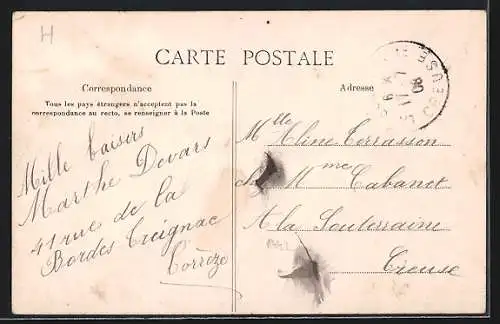 H
CARTE POSTALE
Correspondance
Tous les pays étrangers n'acceptent pas la
correspondance au recto, se renseigner à la Poste
Mille baisers
Marthe Devars
41 rue de la
Bordes Treignac
Corrèze
Adresse
CREUSE
Mlle Aline Terrasson
chez Mme Cabanet
A la Souterraine
Creuse